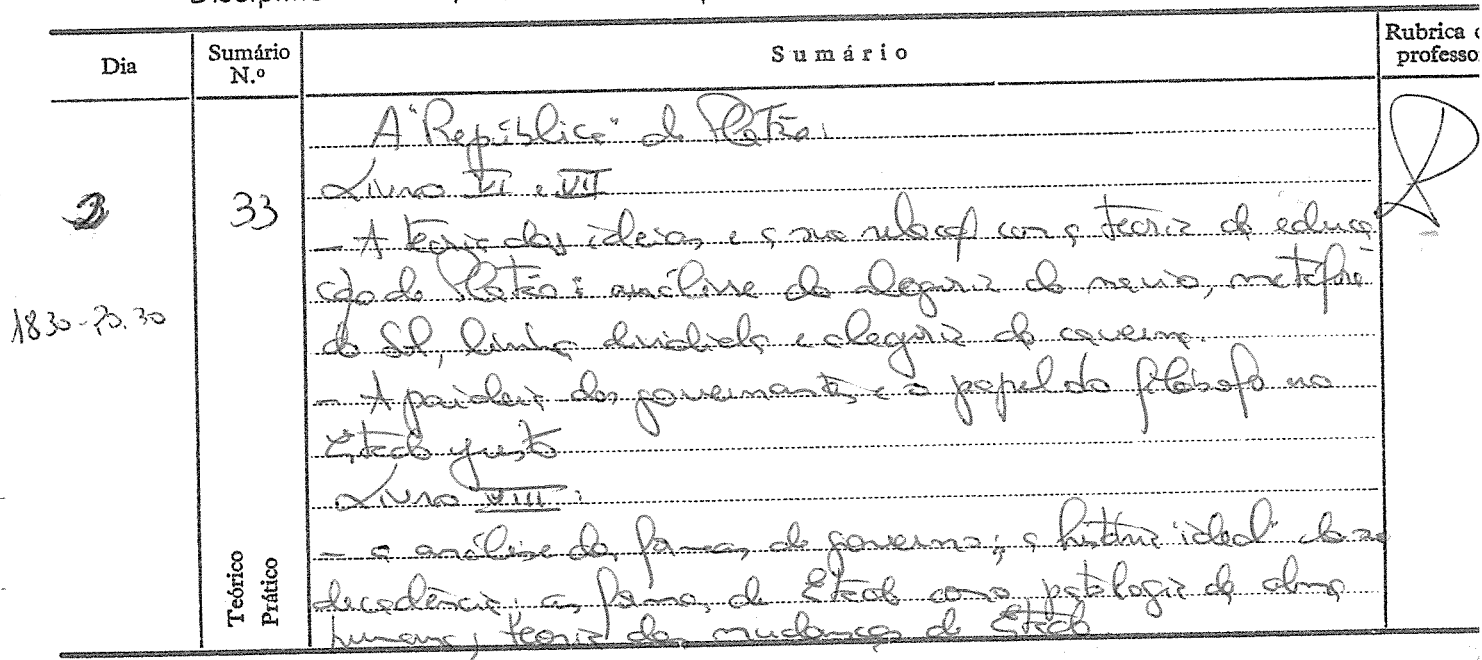 Dia
Sumário N.º
Sumário
Rubrica
professo
A "República" de Platão:
Livro VI e VII
33
- A teoria das ideias, e a sua relação com a teoria da educa
ção de Platão: análise da alegoria do navio, metáfora
1830-20.30
do Sol, linha dividida e alegoria da caverna.
- A paideia dos governantes e o papel do filósofo no
Estado justo
Livro VIII:
- a análise das formas de governo; a história ideal da
decadência; as formas de Estado como patologia da alma
humana; teoria das mudanças de Estado
Teórico
Prático